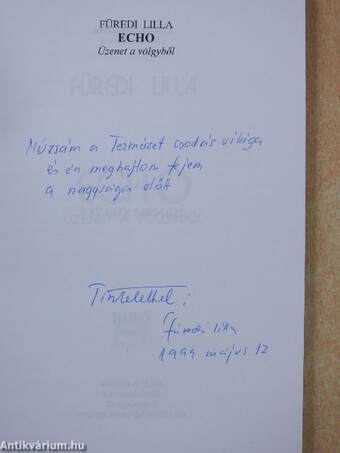 FÜREDI LILLA
ECHO
Üzenet a völgyből
Múzsám a Természet csodás világa
és én meghajtom fejem
a nagysága előtt
Tisztelettel:
Füredi Lilla
1994 május 12
Antikvárium.hu